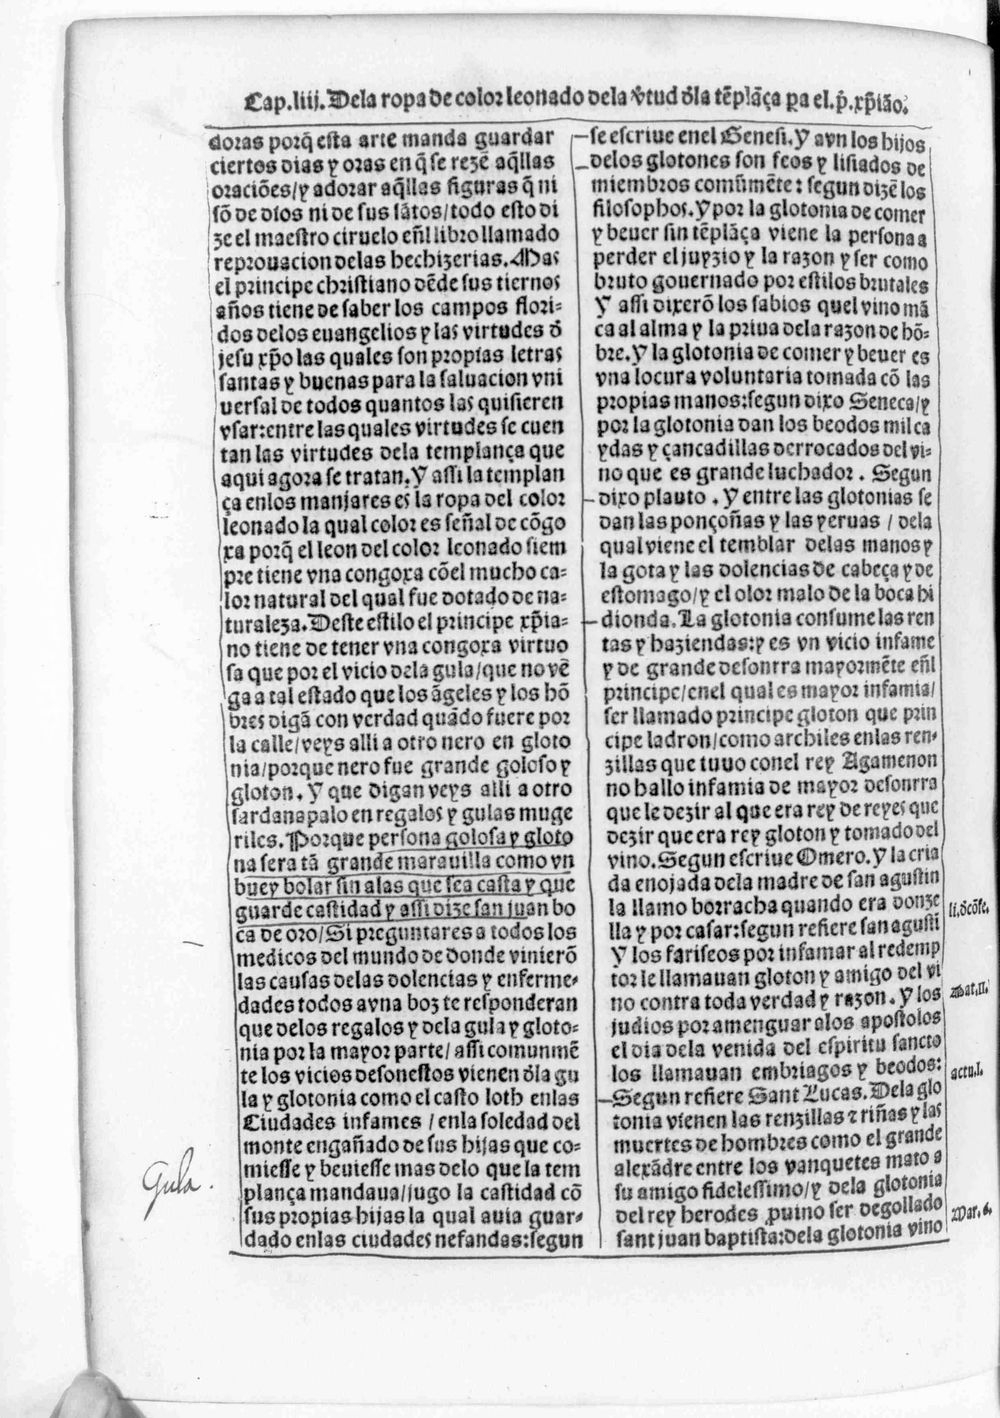 Cap.liij.Dela ropa de color leonado dela v̄tud d̄la tēplāça pa el.p̄.xp̄iāo.
doras porq̄ esta arte manda guardar
ciertos dias y oras en q̄ se rezē aq̄llas
oraciōes/y adorar aq̄llas figuras q̄ ni
sō de dios ni de sus sātos/todo esto di
ze el maestro ciruelo eñl libro llamado
reprouacion delas hechizerias. Mas
el principe christiano dēde sus tiernos
años tiene de saber los campos flori-
dos delos euangelios y las virtudes d̄
jesu xp̄o las quales son propias letras
santas y buenas para la saluacion vni
uersal de todos quantos las quisieren
vsar:entre las quales virtudes se cuen
tan las virtudes dela templança que
aqui agora se tratan. Y assi la templan
ça enlos manjares es la ropa del color
leonado la qual color es señal de cōgo
xa porq̄ el leon del color leonado siem
pre tiene vna congoxa cōel mucho ca-
lor natural del qual fue dotado de na-
turaleza. Deste estilo el principe xp̄ia-
no tiene de tener vna congoxa virtuo
sa que por el vicio dela gula/que no vē
ga a tal estado que los āgeles y los hō
bres digā con verdad quādo fuere por
la calle/veys alli a otro nero en gloto
nia/porque nero fue grande goloso y
gloton. Y que digan veys alli a otro
sardanapalo en regalos y gulas muge
riles. Porque persona golosa y gloto
na sera tā grande marauilla como vn
buey bolar sin alas que sea casta y que
guarde castidad y assi dize san juan bo
ca de oro/Si preguntares a todos los
medicos del mundo de donde vinierō
las causas delas dolencias y enferme-
dades todos avna boz te responderan
que delos regalos y dela gula y gloto-
nia por la mayor parte/ assi comunmē
te los vicios desonestos vienen d̄la gu
la y glotonia como el casto loth enlas
Ciudades infames / enla soledad del
monte engañado de sus hijas que co-
miesse y beuiesse mas delo que la tem
plança mandaua/jugo la castidad cō
sus propias hijas la qual auia guar-
dado enlas ciudades nefandas:segun
se escriue enel Genesi. Y avn los hijos
delos glotones son feos y lisiados de
miembros comūmēte: segun dizē los
filosophos. Y por la glotonia de comer
y beuer sin tēplāça viene la persona a
perder el juyzio y la razon y ser como
bruto gouernado por estilos brutales
Y assi dixerō los sabios quel vino mā
ca al alma y la priua dela razon de hō-
bre. Y la glotonia de comer y beuer es
vna locura voluntaria tomada cō las
propias manos:segun dixo Seneca/y
por la glotonia dan los beodos mil ca
ydas y çancadillas derrocados del vi-
no que es grande luchador. Segun
dixo plauto . Y entre las glotonias se
dan las ponçoñas y las yeruas / dela
qual viene el temblar delas manos y
la gota y las dolencias de cabeça y de
estomago/y el olor malo de la boca hi
dionda. La glotonia consume las ren
tas y haziendas:y es vn vicio infame
y de grande desonrra mayormēte eñl
principe/enel qual es mayor infamia/
ser llamado principe gloton que prin
cipe ladron/como archiles enlas ren-
zillas que tuuo conel rey Agamenon
no hallo infamia de mayor desonrra
que le dezir al que era rey de reyes que
dezir que era rey gloton y tomado del
vino. Segun escriue Omero. Y la cria
da enojada dela madre de san agustin
la llamo borracha quando era donze
lla y por casar:segun refiere san agustī
Y los fariseos por infamar al redemp
tor le llamauan gloton y amigo del vi
no contra toda verdad y razon. Y los
judios por amenguar alos apostolos
el dia dela venida del espiritu sancto
los llamauan embriagos y beodos:
Segun refiere Sant Lucas. Dela glo
tonia vienen las renzillas ⁊ riñas y las
muertes de hombres como el grande
alexādre entre los vanquetes mato a
su amigo fidelessimo/y dela glotonia
del rey herodes ꝓuino ser degollado
sant juan baptista:dela glotonia vino
li.d̄cōfe.
Mat.11.
actu.1.
Mar.6.
Gula.